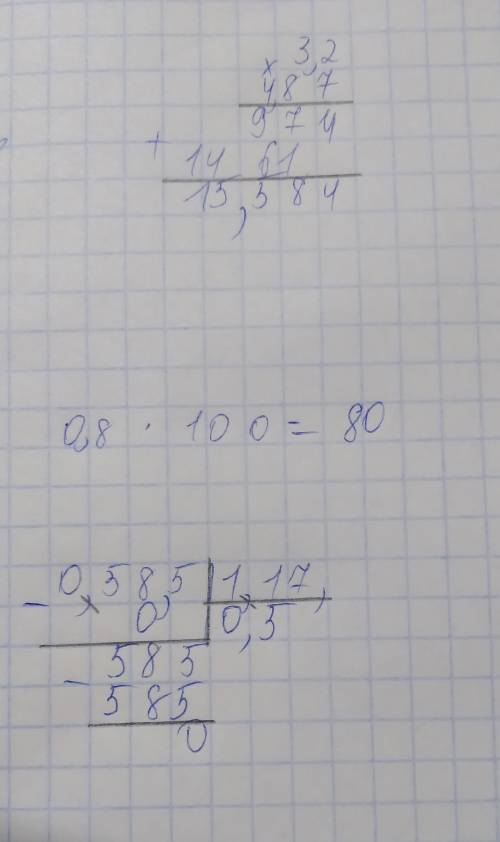 3,2
×
4,87
974
+
14 61
15,584
0,8 · 100 = 80
- 0,58,5 | 1,17,
0, | 0,5
585
- 585
0